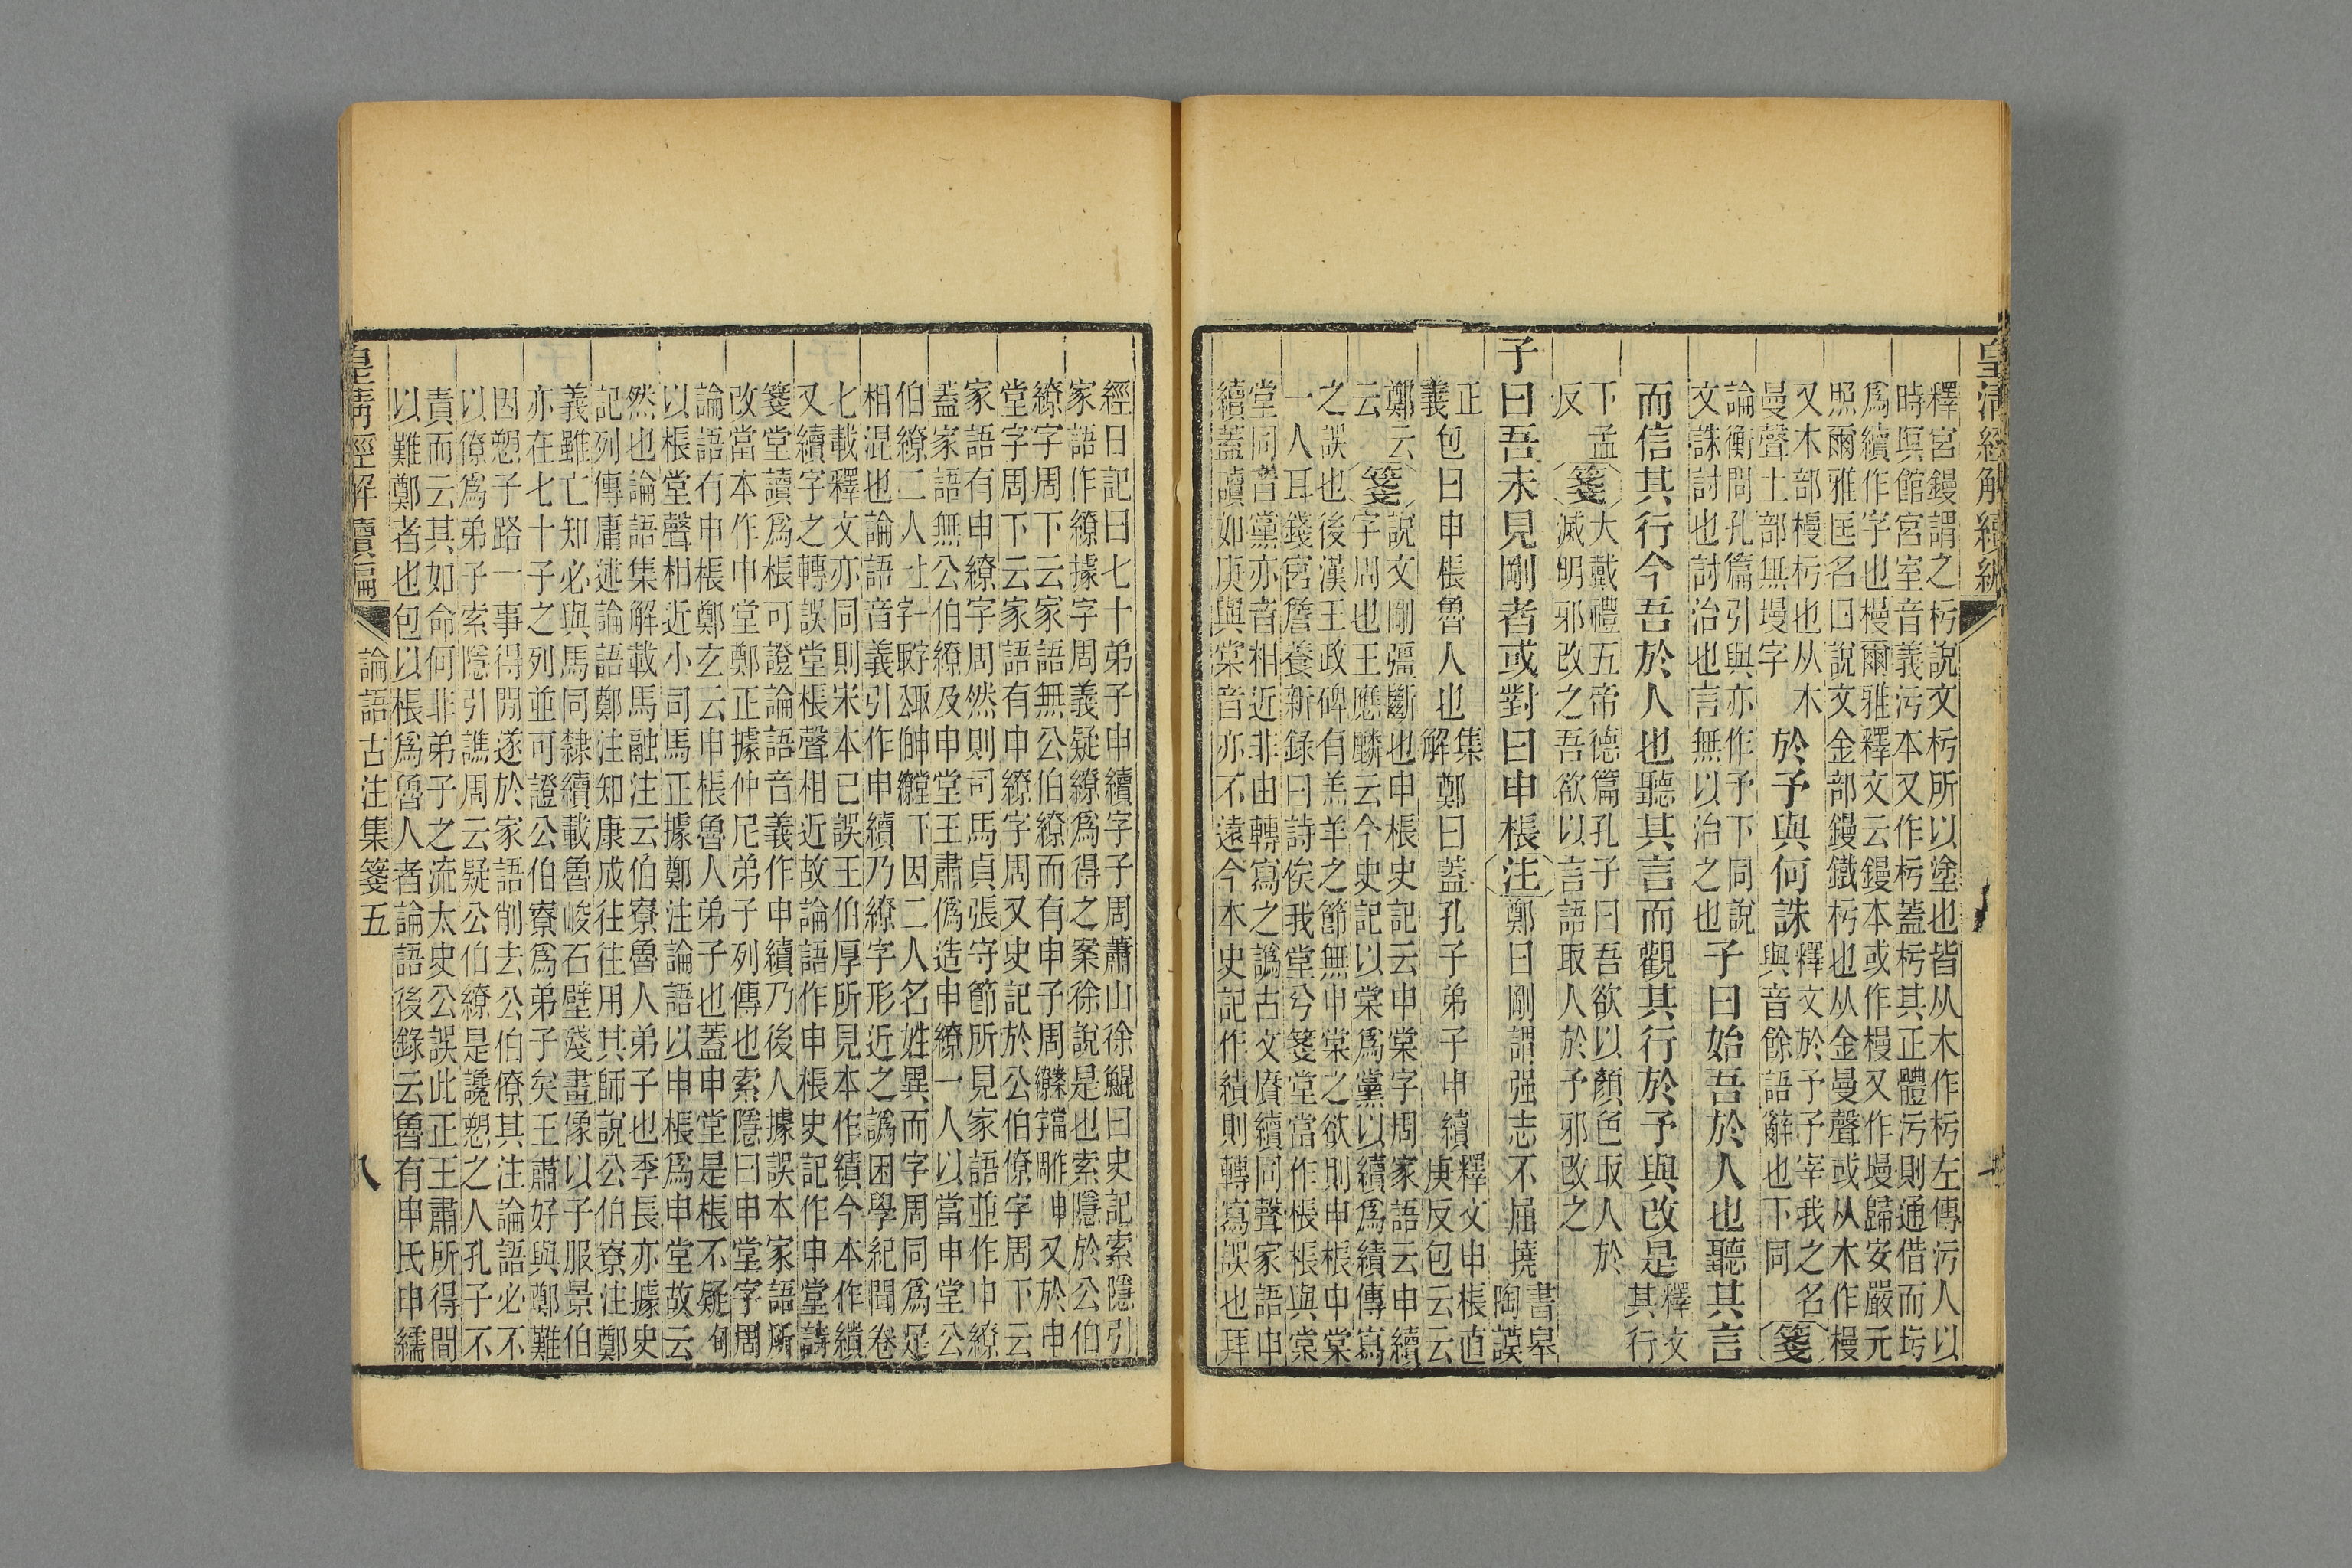 皇清經解續編
釋宮鏝謂之杇說文杇所以塗也皆从木作杇左傳污人以
時塓館宮室音義污本又作杇蓋杇其正體污則通借而圬
爲續作字也槾爾雅釋文云鏝本或作槾又作墁歸安嚴元
照爾雅匡名曰說文金部鏝鐵杇也从金曼聲或从木作槾
又木部槾杇也从木
曼聲土部無墁字
於予與何誅
釋文於予予宰我之名
與音餘語辭也下同
箋
論衡問孔篇引與亦作予下同說
文誅討也討治也言無以治之也
子曰始吾於人也聽其言
而信其行今吾於人也聽其言而觀其行於予與改是
釋文
其行
下孟
反
箋
大戴禮五帝德篇孔子曰吾欲以顏色取人於
滅明邪改之吾欲以言語取人於予邪改之
子曰吾未見剛者或對曰申棖注鄭曰剛謂强志不屈撓
書皋
陶謨
正
義
包曰申棖魯人也
集
解
鄭曰蓋孔子弟子申續
釋文申棖直
庚反包云云
鄭云
云
箋
說文剛彊斷也申棖史記云申棠字周家語云申續
字周也王應麟云今史記以棠爲黨以續爲績傳寫
之誤也後漢王政碑有羔羊之節無申棠之欲則申棖申棠
一人耳錢宮詹養新錄曰詩俟我堂兮箋堂當作棖棖與棠
堂同音黨亦音相近非由轉寫之譌古文賡續同聲家語申
續蓋讀如庚與棠音亦不遠今本史記作績則轉寫誤也拜
經日記曰七十弟子申續字子周蕭山徐鯤曰史記索隱引
家語作繚據字周義疑繚爲得之案徐說是也索隱於公伯
繚字周下云家語無公伯繚而有申子周又於申
堂字周下云家語有申繚字周又史記於公伯僚字周下云
家語有申繚字周然則司馬貞張守節所見家語並作申繚
蓋家語無公伯繚及申堂王肅僞造申繚一人以當申堂公
伯繚二人下因二人名姓異而字周同爲足
相混也論語音義引作申續乃繚字形近之譌困學紀聞卷
七載釋文亦同則宋本已誤王伯厚所見本作績今本作續
又續字之轉誤堂棖聲相近故論語作申棖史記作申堂詩
箋堂讀爲棖可證論語音義作申續乃後人據誤本家語所
改當本作申堂鄭正據仲尼弟子列傳也索隱曰申堂字周
論語有申棖鄭玄云申棖魯人弟子也蓋申堂是棖不疑
以棖堂聲相近小司馬正據鄭注論語以申棖爲申堂故云
然也論語集解載馬融注云伯寮魯人弟子也季長亦據史
記列傳庸述論語鄭注知康成往往用其師說公伯寮注鄭
義雖亡知必與馬同隸續載魯峻石壁殘畫像以子服景伯
亦在七十子之列並可證公伯寮爲弟子矣王肅好與鄭難
因愬子路一事得閒遂於家語削去公伯僚其注論語必不
以僚爲弟子索隱引譙周云疑公伯繚是讒愬之人孔子不
責而云其如命何非弟子之流太史公誤此正王肅所得間
以難鄭者也包以棖爲魯人者論語後錄云魯有申氏申繻
皇清經解續編
論語古注集箋五
八